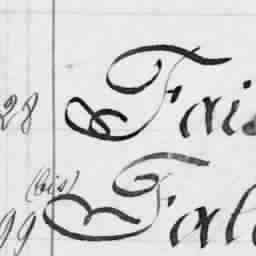 28 Fais
(bis)
99 Fale